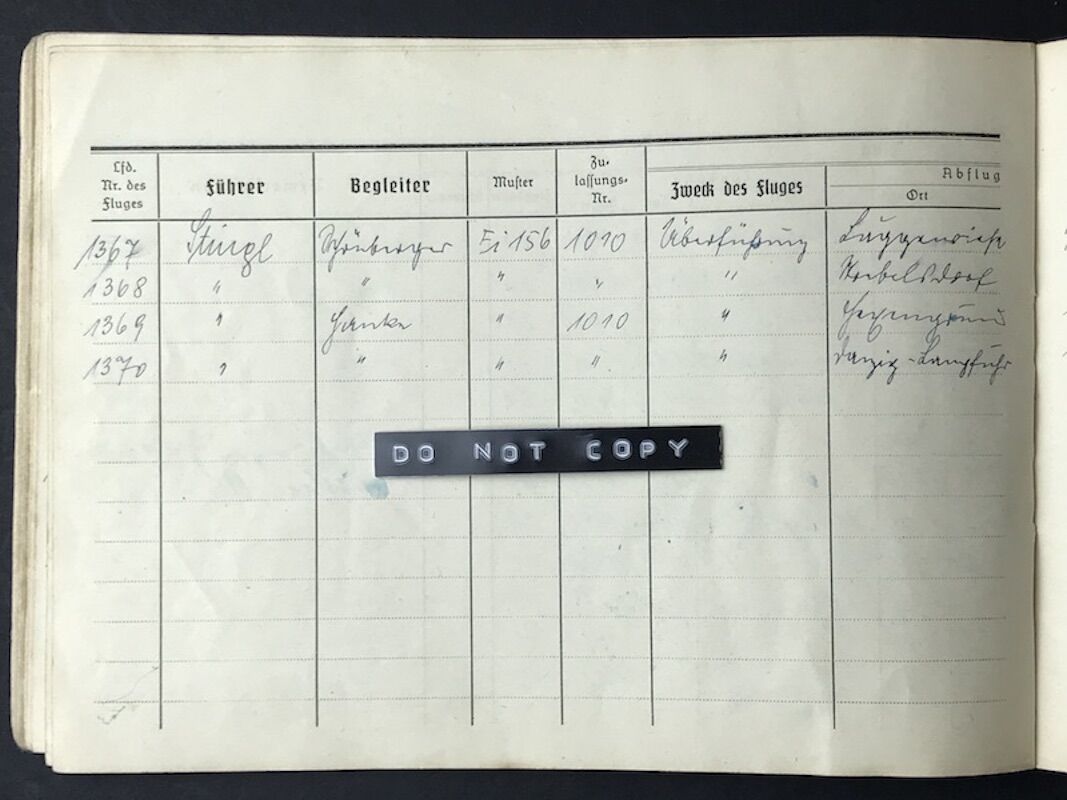 Lfd. Nr. des Fluges Führer Begleiter Muster Zulassungs-Nr. Zweck des Fluges Abflug Ort
1367 Stingl Schönberger Fi 156 1010 Überführung
1368 " " " " "
1369 " Hanke " 1010 " Hexengrund
1370 " " " " " Danzig-Langfuhr
DO NOT COPY